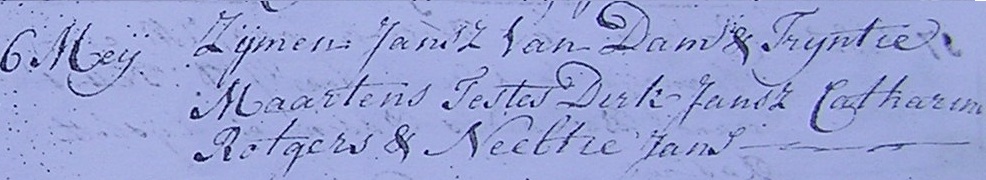 6 Meÿ Zijmen Jansz Van Dam & Tryntie
Maartens Testes Dirk Jansz Catharin
Rotgers & Neeltie Jans